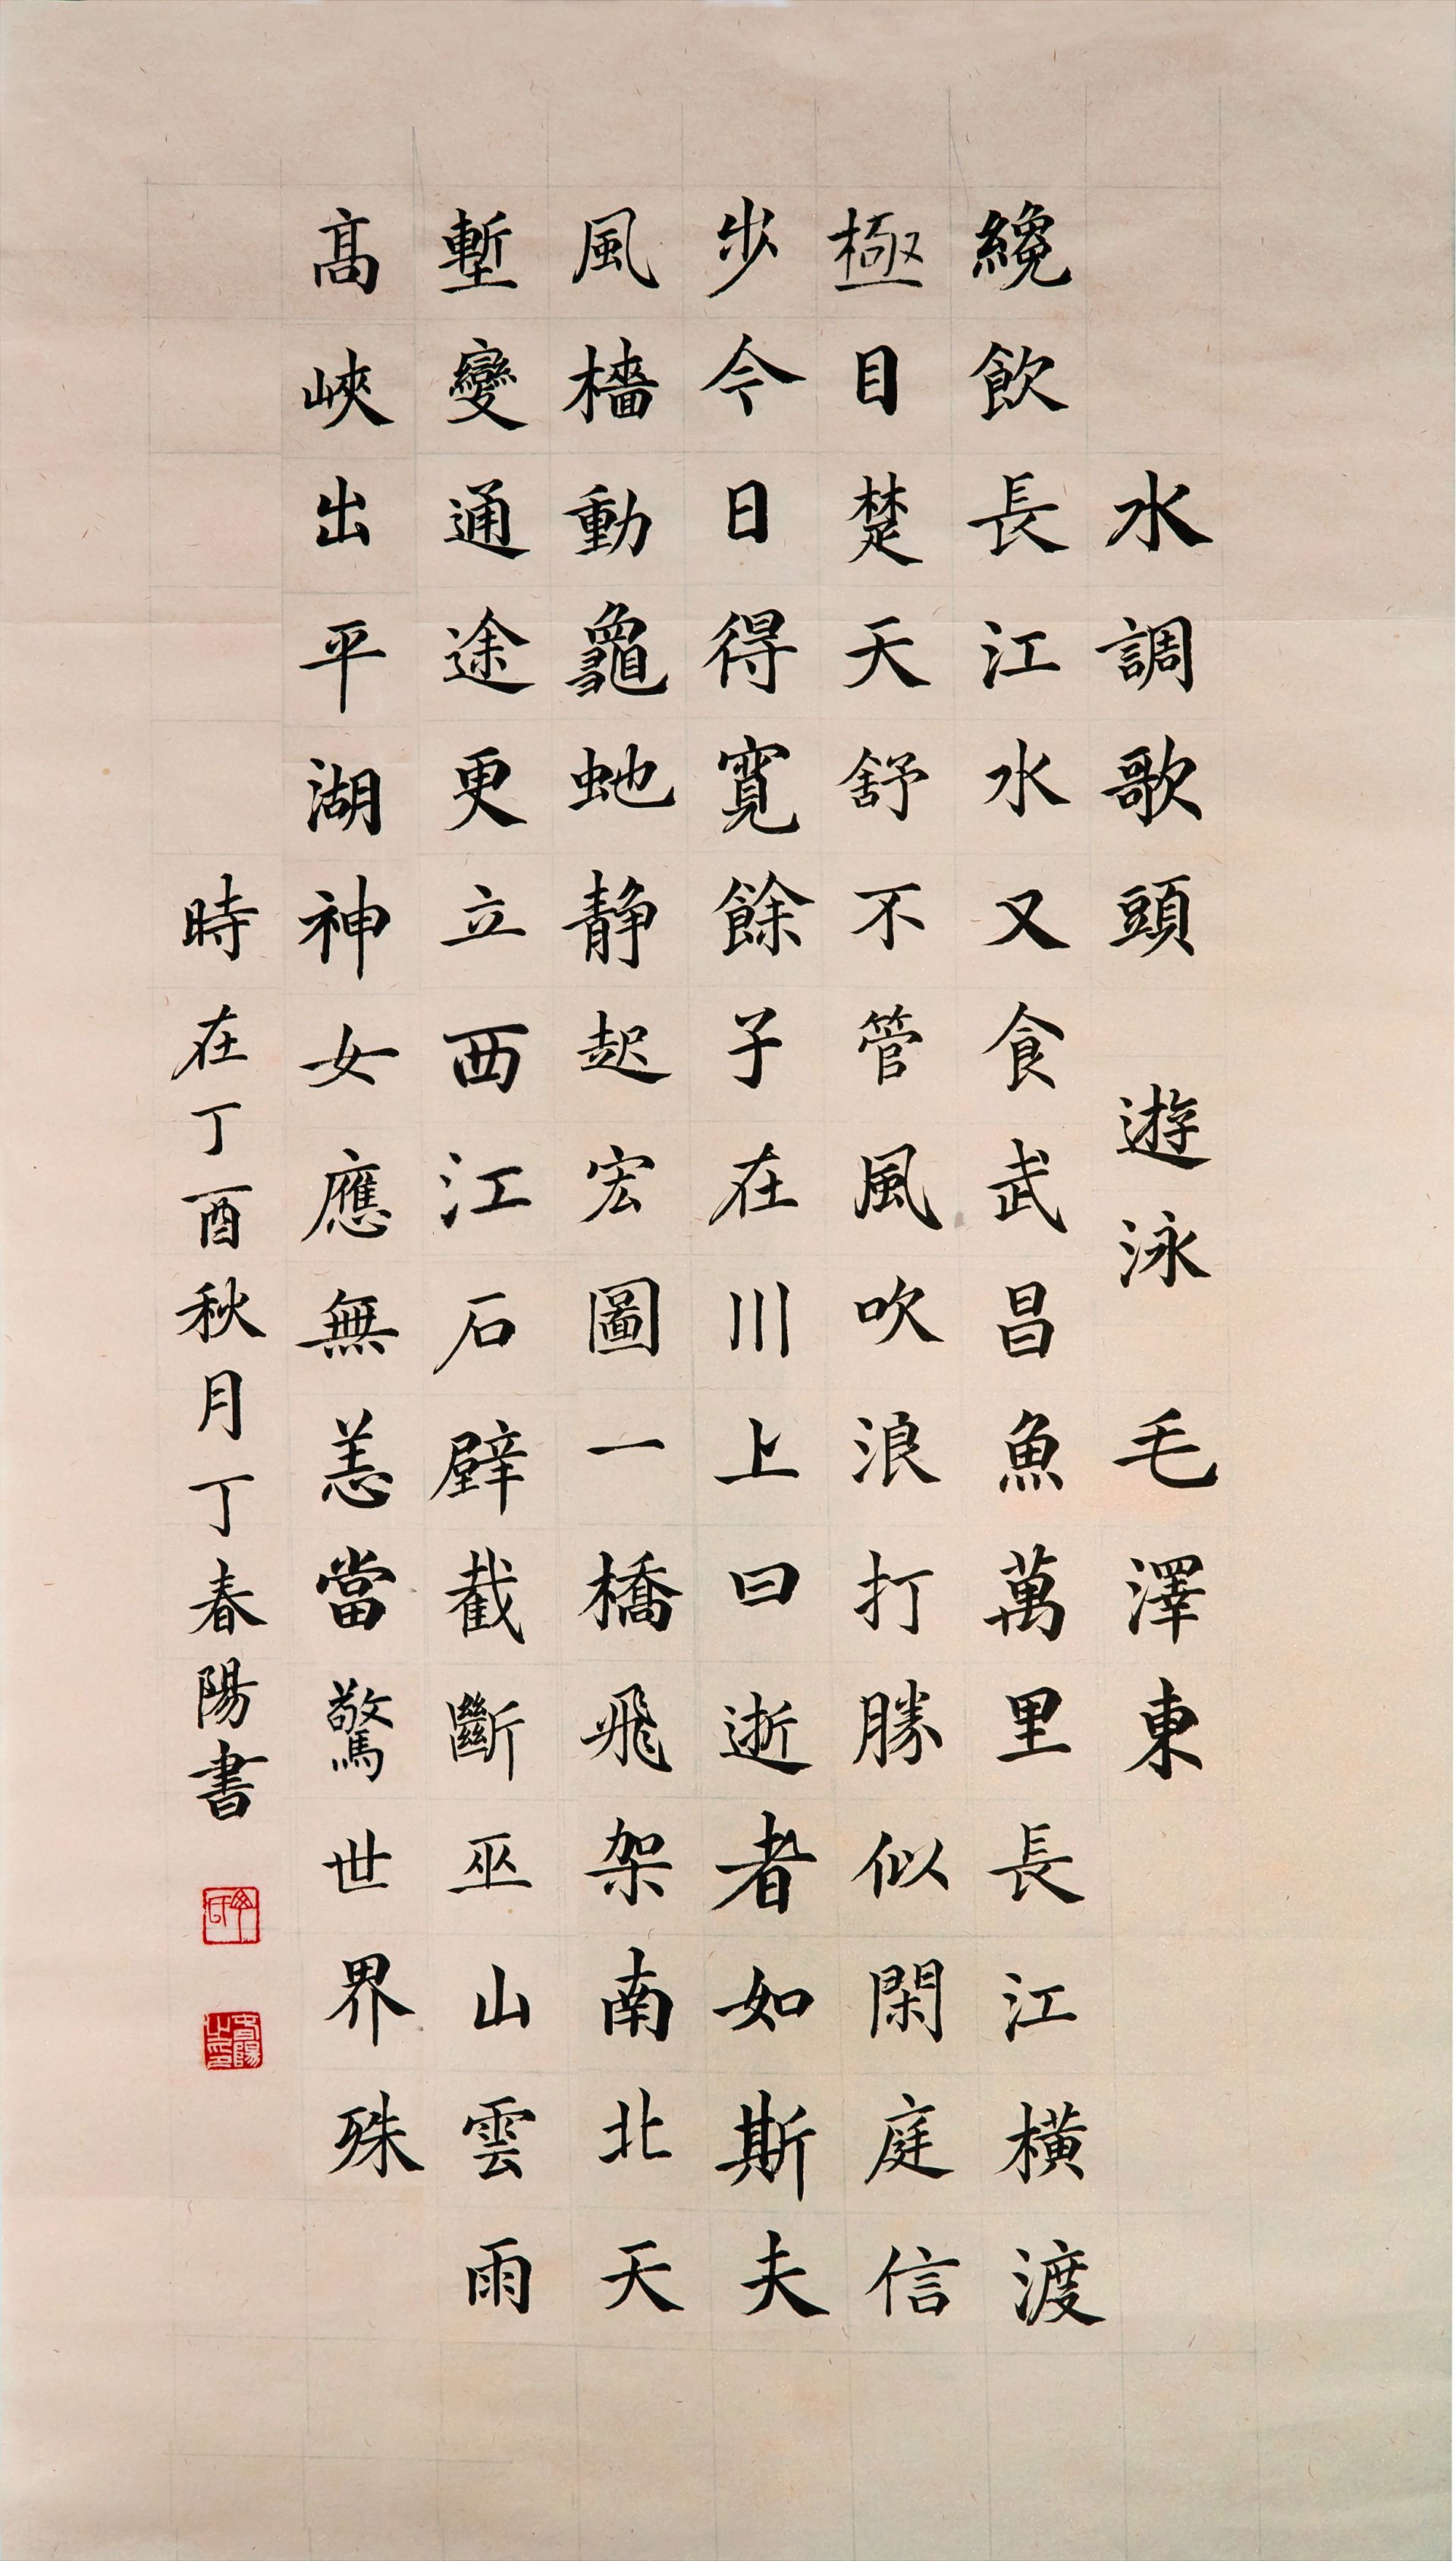 水調歌頭 遊泳 毛澤東
纔飲長江水又食武昌魚萬里長江橫渡
極目楚天舒不管風吹浪打勝似閑庭信
步今日得寬餘子在川上曰逝者如斯夫
風檣動龜虵静起宏圖一橋飛架南北天
塹變通途更立西江石壁截斷巫山雲雨
髙峽出平湖神女應無恙當驚世界殊
時在丁酉秋月丁春陽書
春陽之印